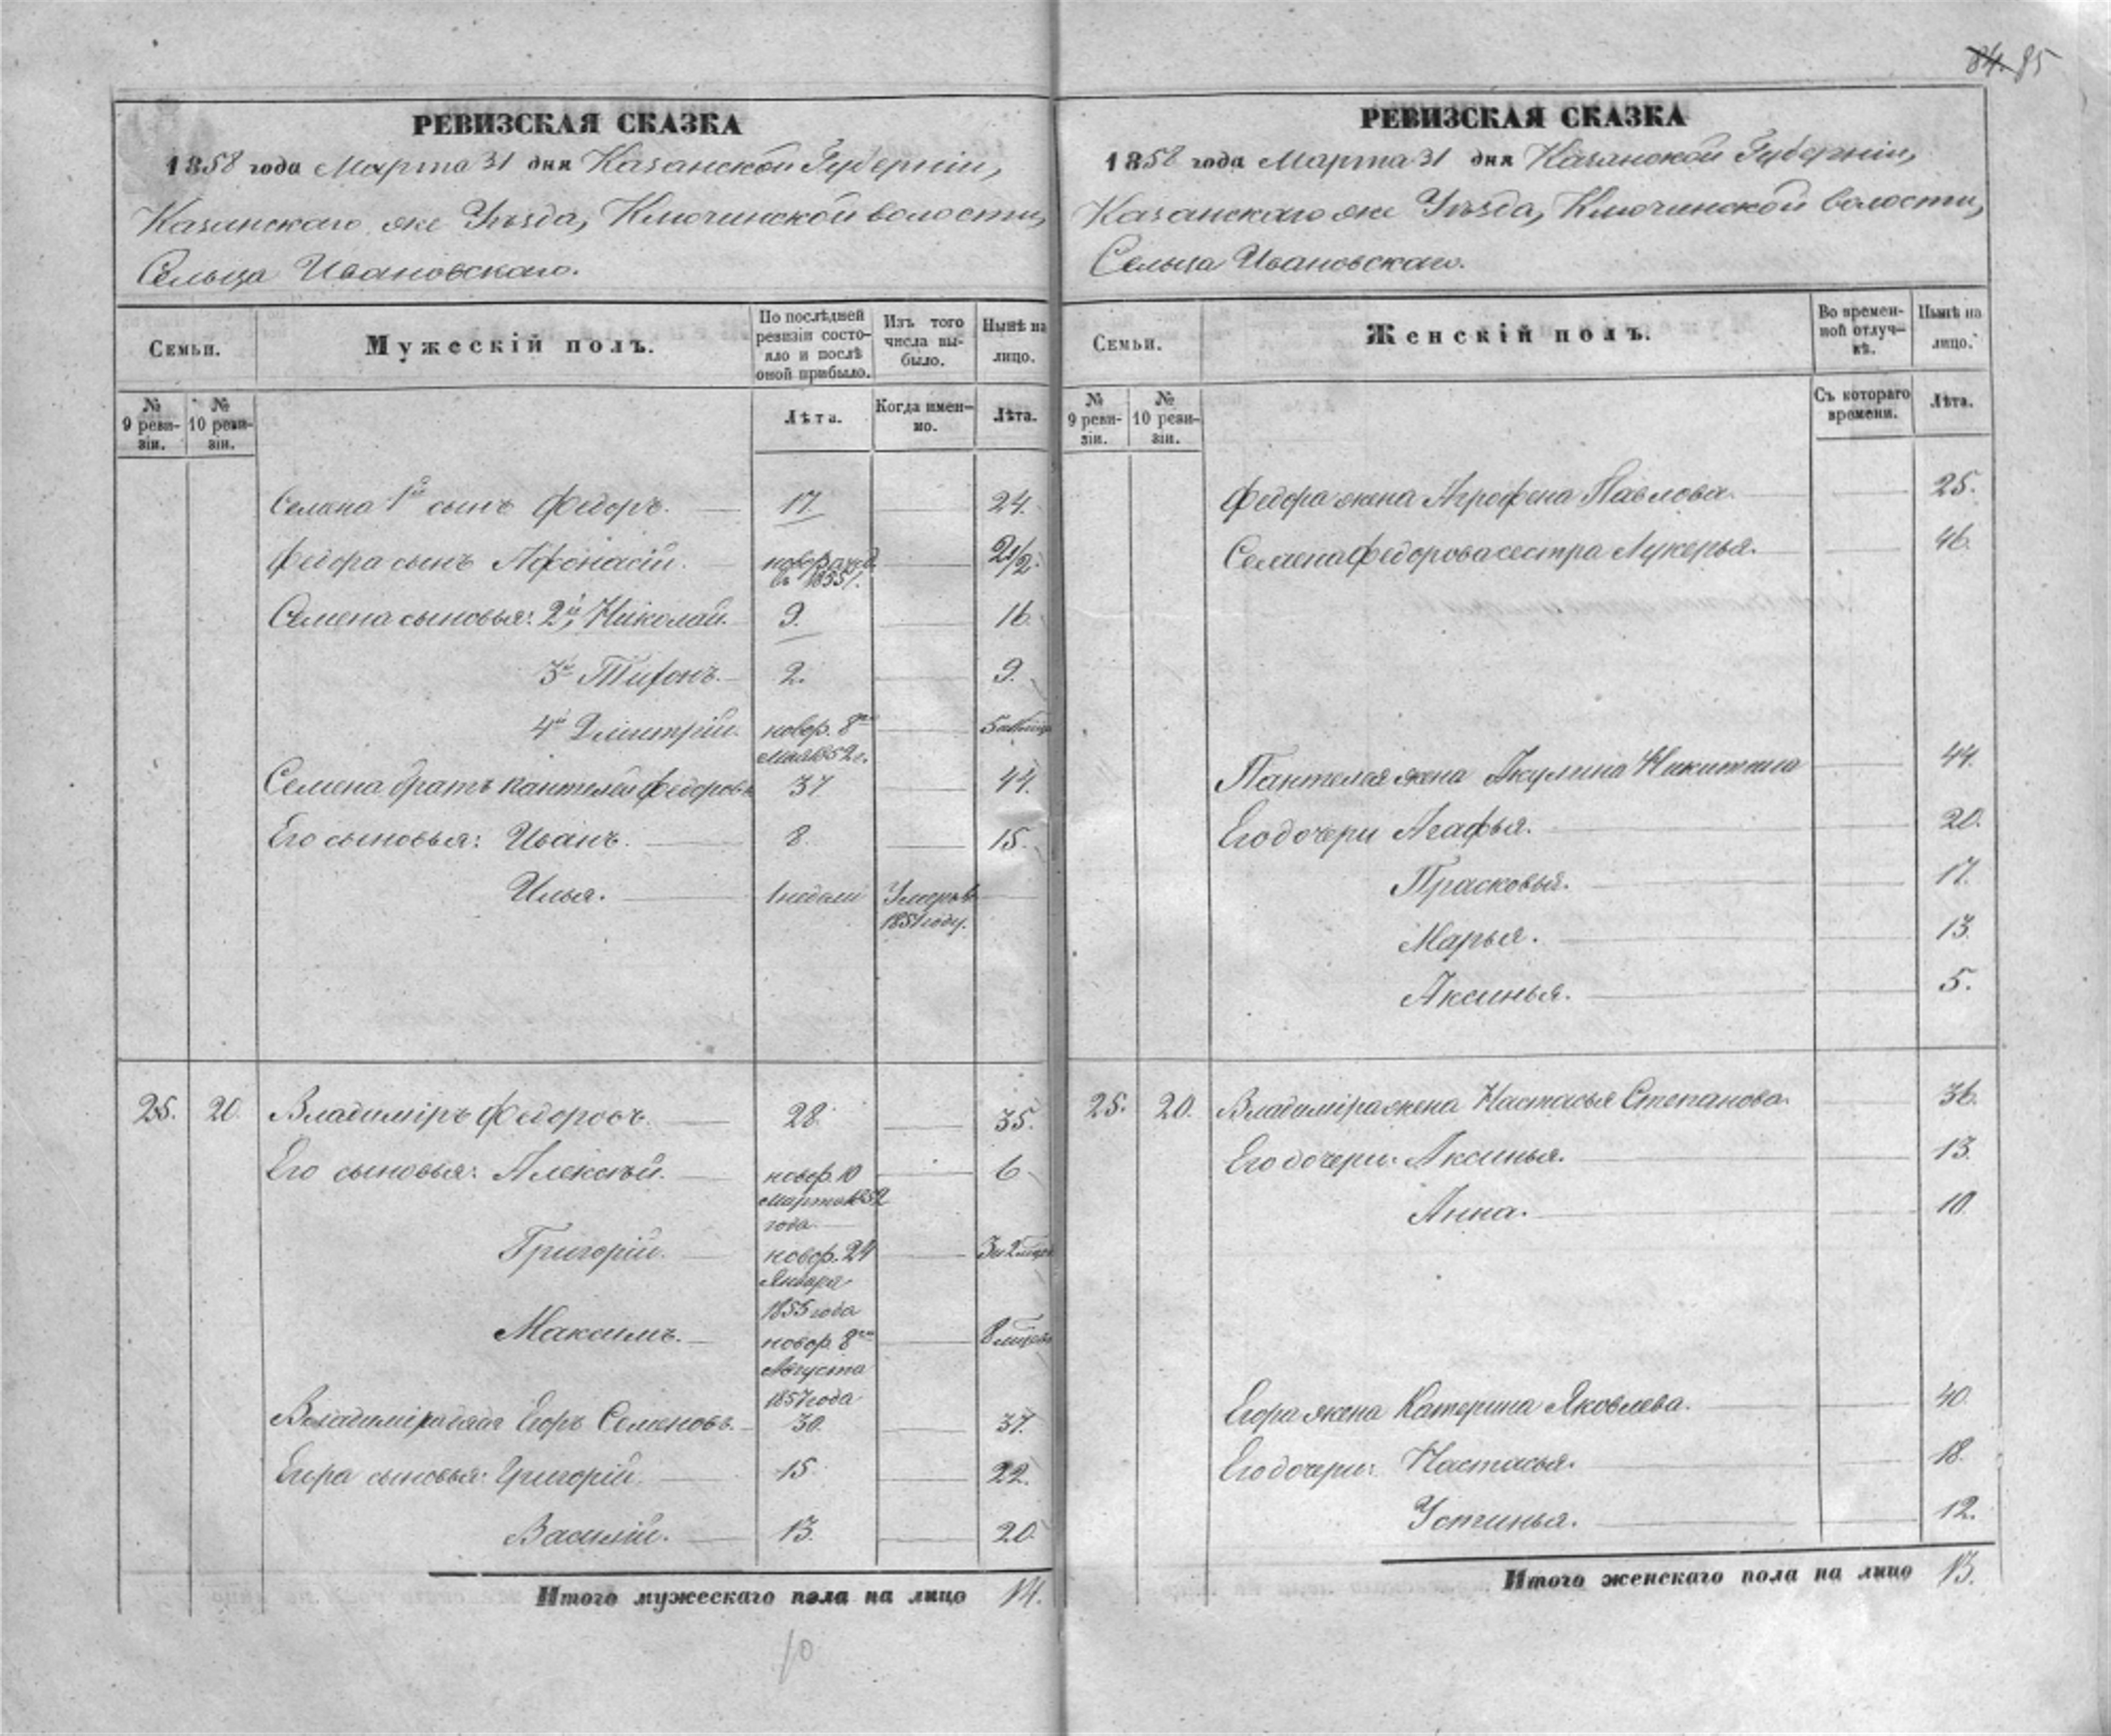 84. 85
РЕВИЗСКАЯ СКАЗКА
1858 года Марта 31 дня Казанской Губерніи,
Казанскаго же Уѣзда, Ключинской волости,
Сельца Ивановскаго.
Семьи.
Мужескій полъ.
По послѣдней ревизіи состояло и послѣ оной прибыло.
Изъ того числа выбыло.
Нынѣ на лицо.
№ 9 ревизіи.
№ 10 ревизіи.
Лѣта.
Когда именно.
Лѣта.
Семена 1й сынъ Федоръ. 17. 24.
Федора сынъ Афонасій. новорожд. въ 1855 г. 2 1/2.
Семена сыновья: 2й, Николай. 9. 16.
3й Тифонъ. 2. 9.
4й Дмитрій. новор. 8го Мая 1852 г. 5
Семена братъ Пантелей Федоровъ 37 44.
Его сыновья: Иванъ. 8. 15.
Илья. 1 недели Умеръ въ 1851 году.
25. 20. Владиміръ Федоровъ. 28. 35.
Его сыновья: Алексѣй. новор. 10 Марта 1852 года 6
Григорій. новор. 24 Января 1855 года 3 и 2 мѣсяц
Максимъ. новор. 8го Августа 1857 года 8 мѣсяц
Владиміра дядя Егоръ Семеновъ. 30. 37.
Егора сыновья: Григорій. 15 22.
Василій. 13. 20.
Итого мужескаго пола на лицо 14.
10
РЕВИЗСКАЯ СКАЗКА
1858 года Марта 31 дня Казанской Губерніи,
Казанскаго же Уѣзда, Ключинской волости,
Сельца Ивановскаго.
Семьи.
Женскій полъ.
Во временной отлучкѣ.
Нынѣ на лицо.
№ 9 ревизіи.
№ 10 ревизіи.
Съ котораго времени.
Лѣта.
Федора жена Агрофена Павлова. 25.
Семена Федорова сестра Лукерья. 46.
Пантелея жена Акулина Никитина 44.
Его дочери Агафья. 20.
Прасковья. 17.
Марья. 13.
Аксинья. 5.
25. 20. Владиміра жена Настасья Степанова. 36.
Его дочери: Аксинья. 13.
Анна. 10.
Егора жена Катерина Яковлева. 40.
Его дочери: Настасья. 18.
Устинья. 12.
Итого женскаго пола на лицо 13.